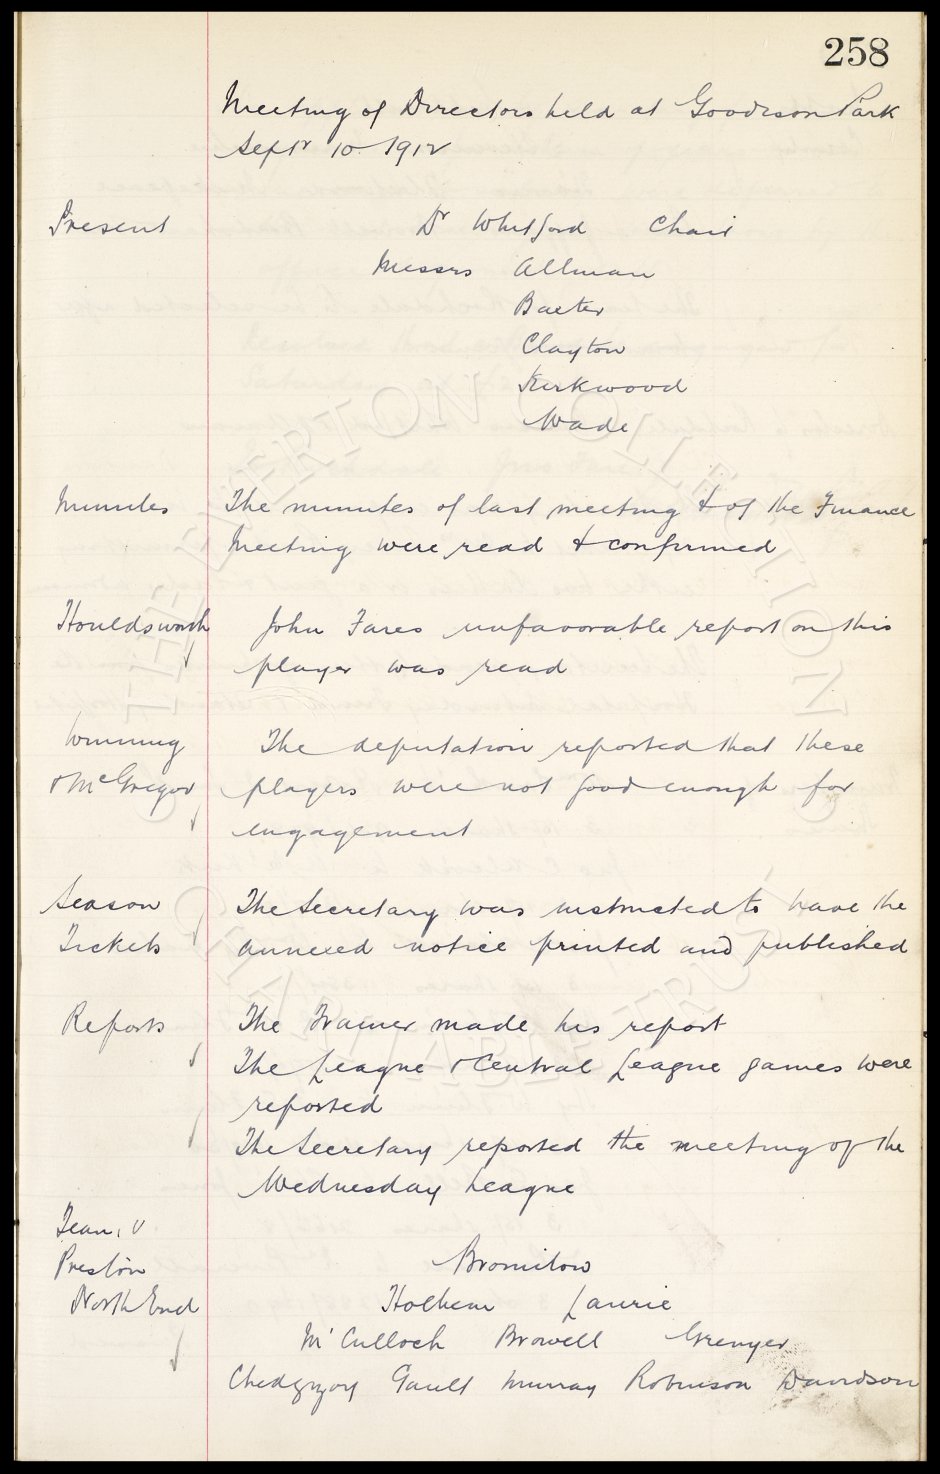 258
Meeting of Directors held at Goodison Park
Septr 10 1912
Present Dr Whitford Chair
Messrs Allman
Baxter
Clayton
Kirkwood
Wade
Minutes The minutes of last meeting & of the Finance
Meeting were read & confirmed
Houldsworth John Fares unfavorable report on this
player was read
The deputation reported that these
& McGregor players were not good enough for
engagement
Season The Secretary was instructed to have the
Tickets annexed notice printed and published
Reports The Trainer made his report
The League & Central League games were
reported
The Secretary reported the meeting of the
Wednesday League
Team V
Preston Bromilow
North End Holbem Laurie
McCulloch Browell Grenyer
Chedgzoy Gault Murray Robinson Davidson
THE EVERTON COLLECTION
CHARITABLE TRUST